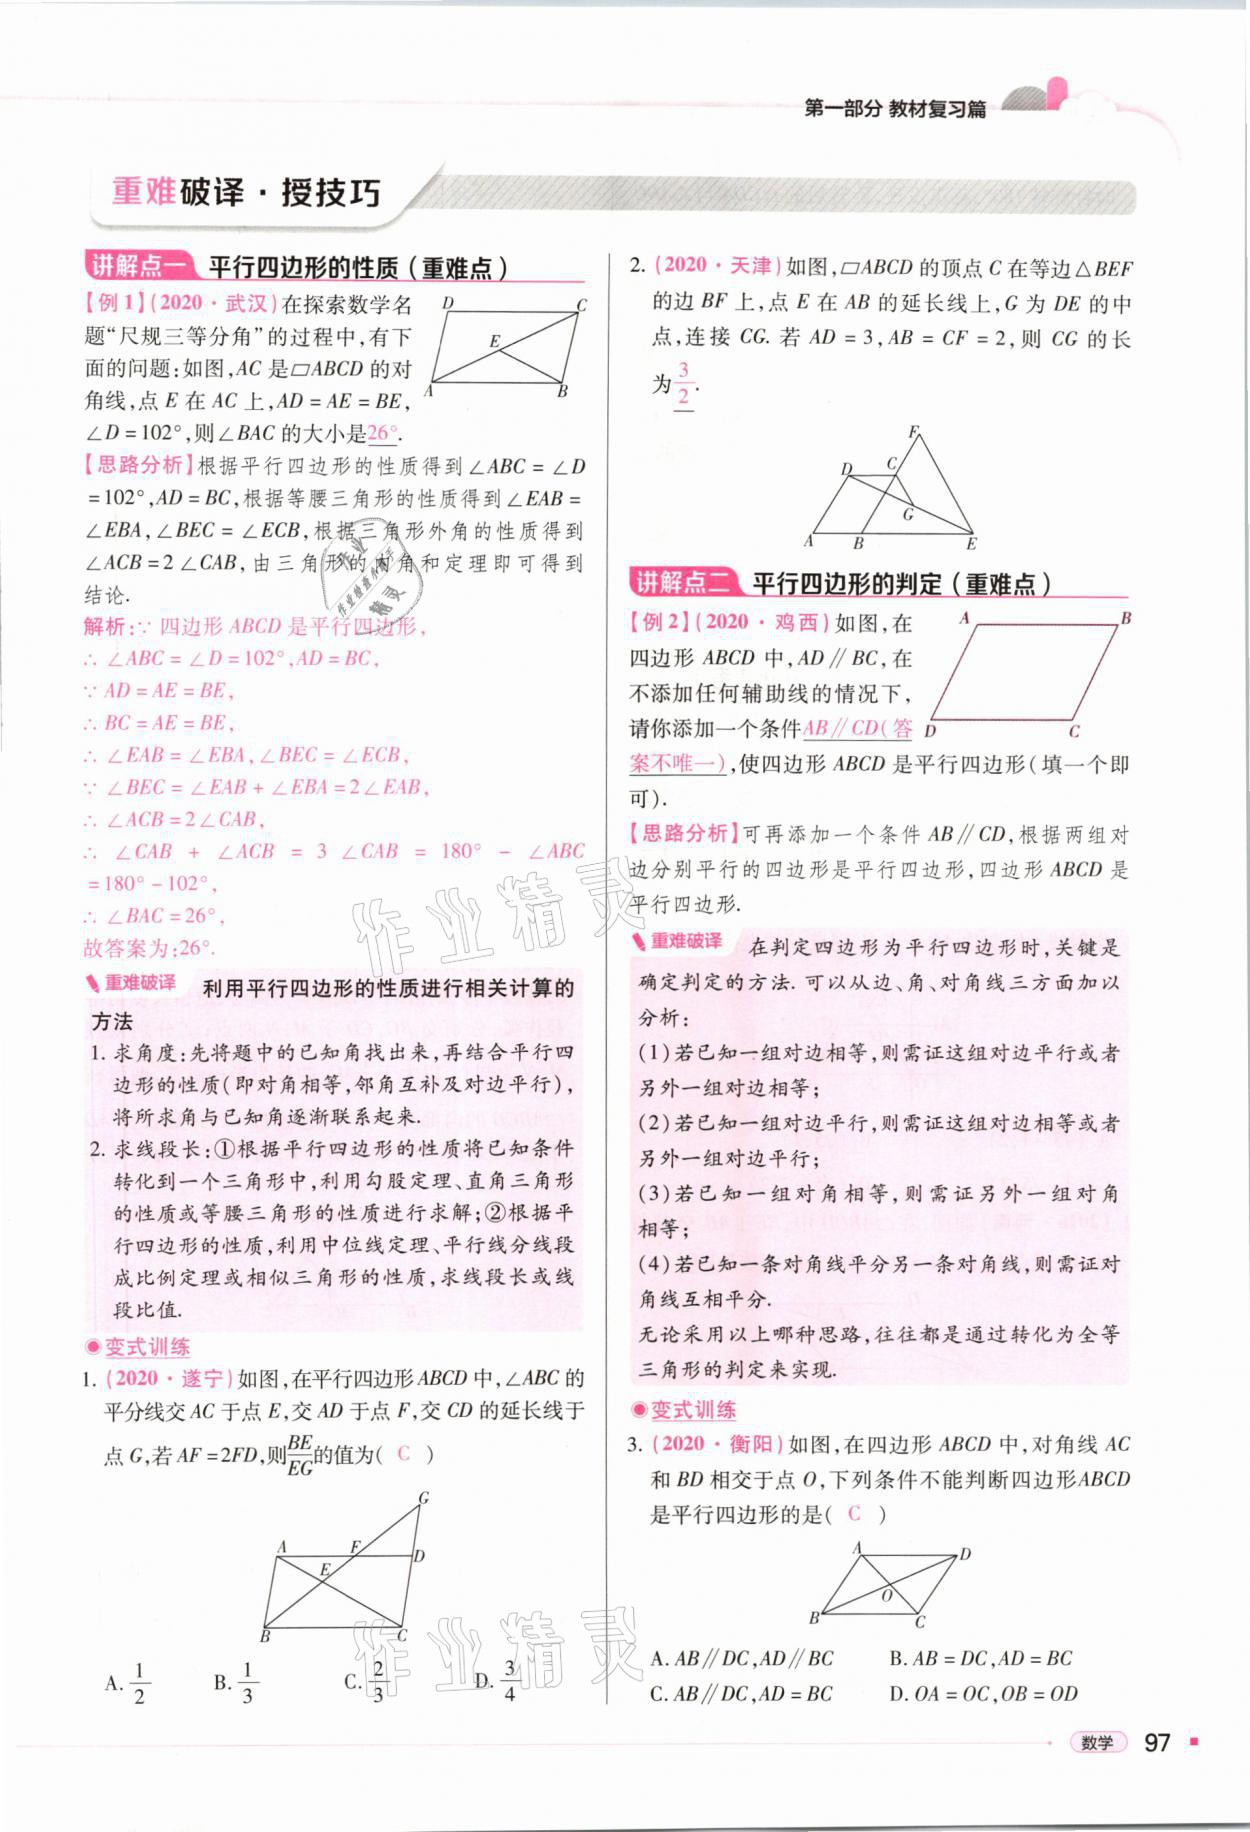 第一部分 教材复习篇
重难破译·授技巧
讲解点一 平行四边形的性质(重难点)
【例1】(2020·武汉)在探索数学名
题“尺规三等分角”的过程中,有下
面的问题:如图,AC是▱ABCD的对
角线,点E在AC上,AD=AE=BE,
∠D=102°,则∠BAC的大小是26°.
D
C
E
A
B
【思路分析】根据平行四边形的性质得到∠ABC=∠D
=102°,AD=BC,根据等腰三角形的性质得到∠EAB=
∠EBA,∠BEC=∠ECB,根据三角形外角的性质得到
∠ACB=2∠CAB,由三角形的内角和定理即可得到
结论.
解析:∵四边形ABCD是平行四边形,
∴∠ABC=∠D=102°,AD=BC,
∵AD=AE=BE,
∴BC=AE=BE,
∴∠EAB=∠EBA,∠BEC=∠ECB,
∵∠BEC=∠EAB+∠EBA=2∠EAB,
∴∠ACB=2∠CAB,
∴∠CAB+∠ACB=3∠CAB=180°-∠ABC
=180°-102°,
∴∠BAC=26°,
故答案为:26°.
重难破译 利用平行四边形的性质进行相关计算的
方法
1. 求角度:先将题中的已知角找出来,再结合平行四
边形的性质(即对角相等,邻角互补及对边平行),
将所求角与已知角逐渐联系起来.
2. 求线段长:①根据平行四边形的性质将已知条件
转化到一个三角形中,利用勾股定理、直角三角形
的性质或等腰三角形的性质进行求解;②根据平
行四边形的性质,利用中位线定理、平行线分线段
成比例定理或相似三角形的性质,求线段长或线
段比值.
变式训练
1. (2020·遂宁)如图,在平行四边形ABCD中,∠ABC的
平分线交AC于点E,交AD于点F,交CD的延长线于
点G,若AF=2FD,则BE/EG的值为( C )
G
A
F
D
E
B
C
A. 1/2 B. 1/3 C. 2/3 D. 3/4
2. (2020·天津)如图,▱ABCD的顶点C在等边△BEF
的边BF上,点E在AB的延长线上,G为DE的中
点,连接CG.若AD=3,AB=CF=2,则CG的长
为3/2.
F
D
C
G
A
B
E
讲解点二 平行四边形的判定(重难点)
【例2】(2020·鸡西)如图,在
四边形ABCD中,AD∥BC,在
不添加任何辅助线的情况下,
请你添加一个条件AB∥CD(答
案不唯一),使四边形ABCD是平行四边形(填一个即
可).
A
B
D
C
【思路分析】可再添加一个条件AB∥CD,根据两组对
边分别平行的四边形是平行四边形,四边形ABCD是
平行四边形.
重难破译 在判定四边形为平行四边形时,关键是
确定判定的方法.可以从边、角、对角线三方面加以
分析:
(1)若已知一组对边相等,则需证这组对边平行或者
另外一组对边相等;
(2)若已知一组对边平行,则需证这组对边相等或者
另外一组对边平行;
(3)若已知一组对角相等,则需证另外一组对角
相等;
(4)若已知一条对角线平分另一条对角线,则需证对
角线互相平分.
无论采用以上哪种思路,往往都是通过转化为全等
三角形的判定来实现.
变式训练
3. (2020·衡阳)如图,在四边形ABCD中,对角线AC
和BD相交于点O,下列条件不能判断四边形ABCD
是平行四边形的是( C )
A
D
O
B
C
A. AB∥DC,AD∥BC B. AB=DC,AD=BC
C. AB∥DC,AD=BC D. OA=OC,OB=OD
作业精灵
作业精灵
数学 97